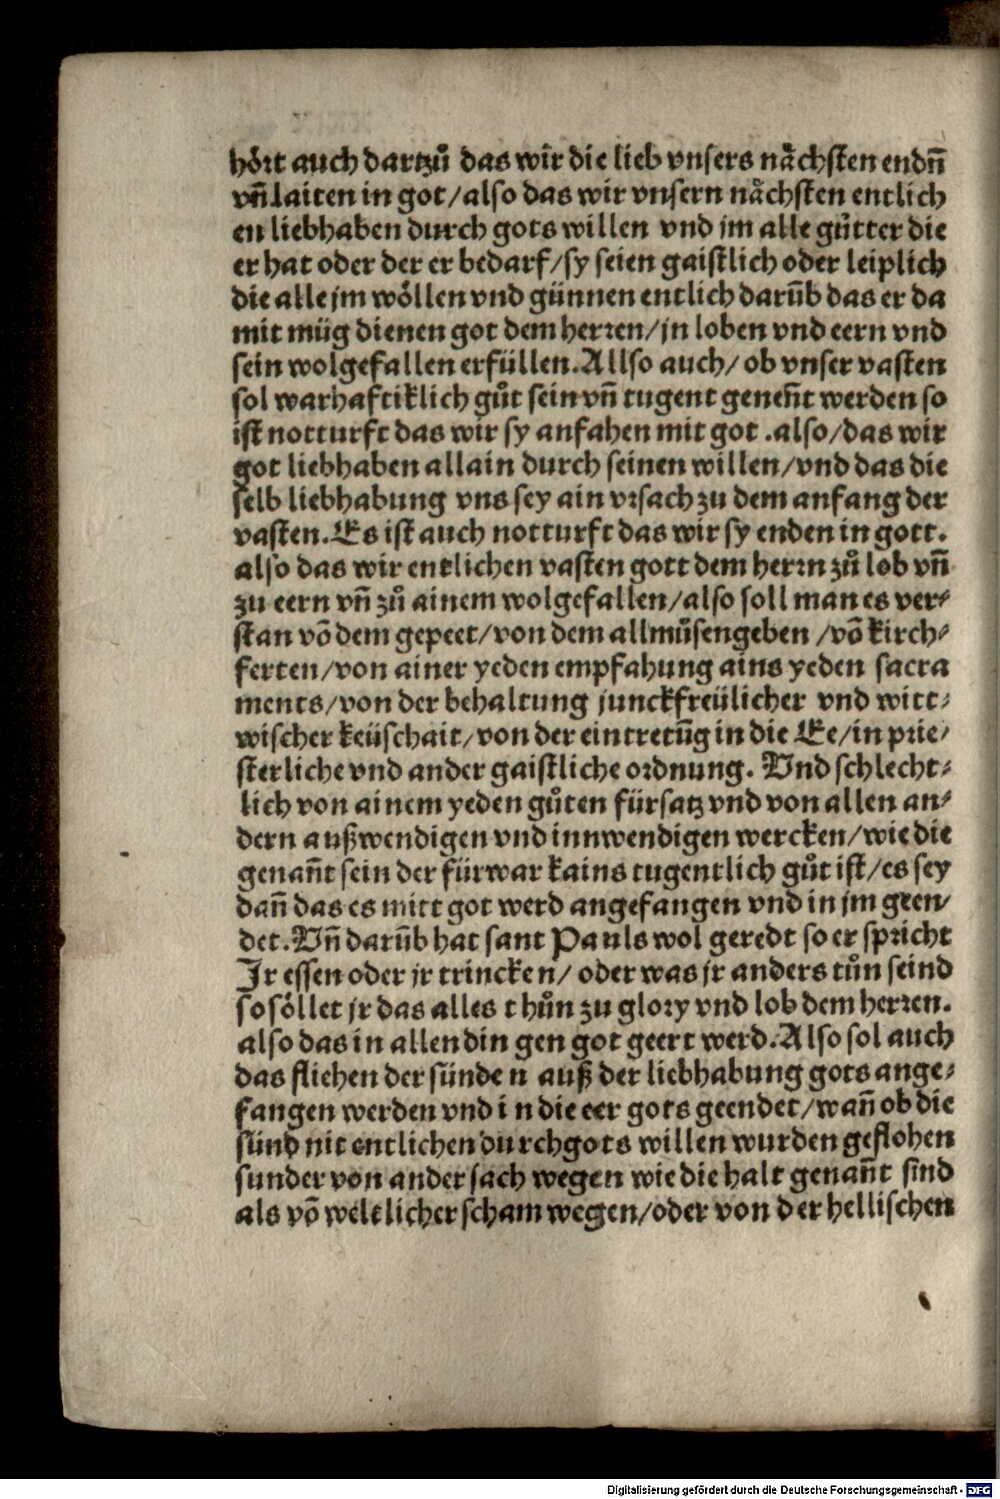 hört auch dartzů das wir die lieb vnsers nächsten endn̄
vn̄ laiten in got/also das wir vnsern nächsten entlich
en liebhaben durch gots willen vnd jm alle gůtter die
er hat oder der er bedarf/sy seien gaistlich oder leiplich
die alle jm wöllen vnd günnen entlich darūb das er da
mit müg dienen got dem herren/jn loben vnd eern vnd
sein wolgefallen erfüllen. Allso auch/ ob vnser vasten
sol warhaftiklich gůt sein vn̄ tugent genen̄t werden so
ist notturft das wir sy anfahen mit got .also/das wir
got liebhaben allain durch seinen willen/vnd das die
selb liebhabung vns sey ain vrsach zu dem anfang der
vasten. Es ist auch notturft das wir sy enden in gott.
also das wir entlichen vasten gott dem herrn zů lob vn̄
zu eern vn̄ zů ainem wolgefallen/also soll man es ver⸗
stan vō dem gepeet/von dem allmůsengeben /vō kirch⸗
ferten/von ainer yeden empfahung ains yeden sacra
ments/von der behaltung junckfreülicher vnd witt⸗
wischer keüschait/von der eintretūg in die Ee/in prie⸗
sterliche vnd ander gaistliche ordnung. Vnd schlecht⸗
lich von ainem yeden gůten fürsatz vnd von allen an⸗
dern außwendigen vnd innwendigen wercken/wie die
genan̄t sein der fürwar kains tugentlich gůt ist/es sey
dan̄ das es mitt got werd angefangen vnd in jm geen⸗
det. Vn̄ darūb hat sant Pauls wol geredt so er spricht
Jr essen oder jr trincken/ oder was jr anders tůn seind
so söllet jr das alles thůn zu glory vnd lob dem herren.
also das in allen dingen got geert werd. Also sol auch
das fliehen der sünden auß der liebhabung gots ange⸗
fangen werden vnd in die eer gots geendet/wan̄ ob die
sünd nit entlichen durch gots willen wurden geflohen
sunder von ander sach wegen wie die halt genan̄t sind
als vō weltlicher scham wegen/oder von der hellischen
Digitalisierung gefördert durch die Deutsche Forschungsgemeinschaft - DFG